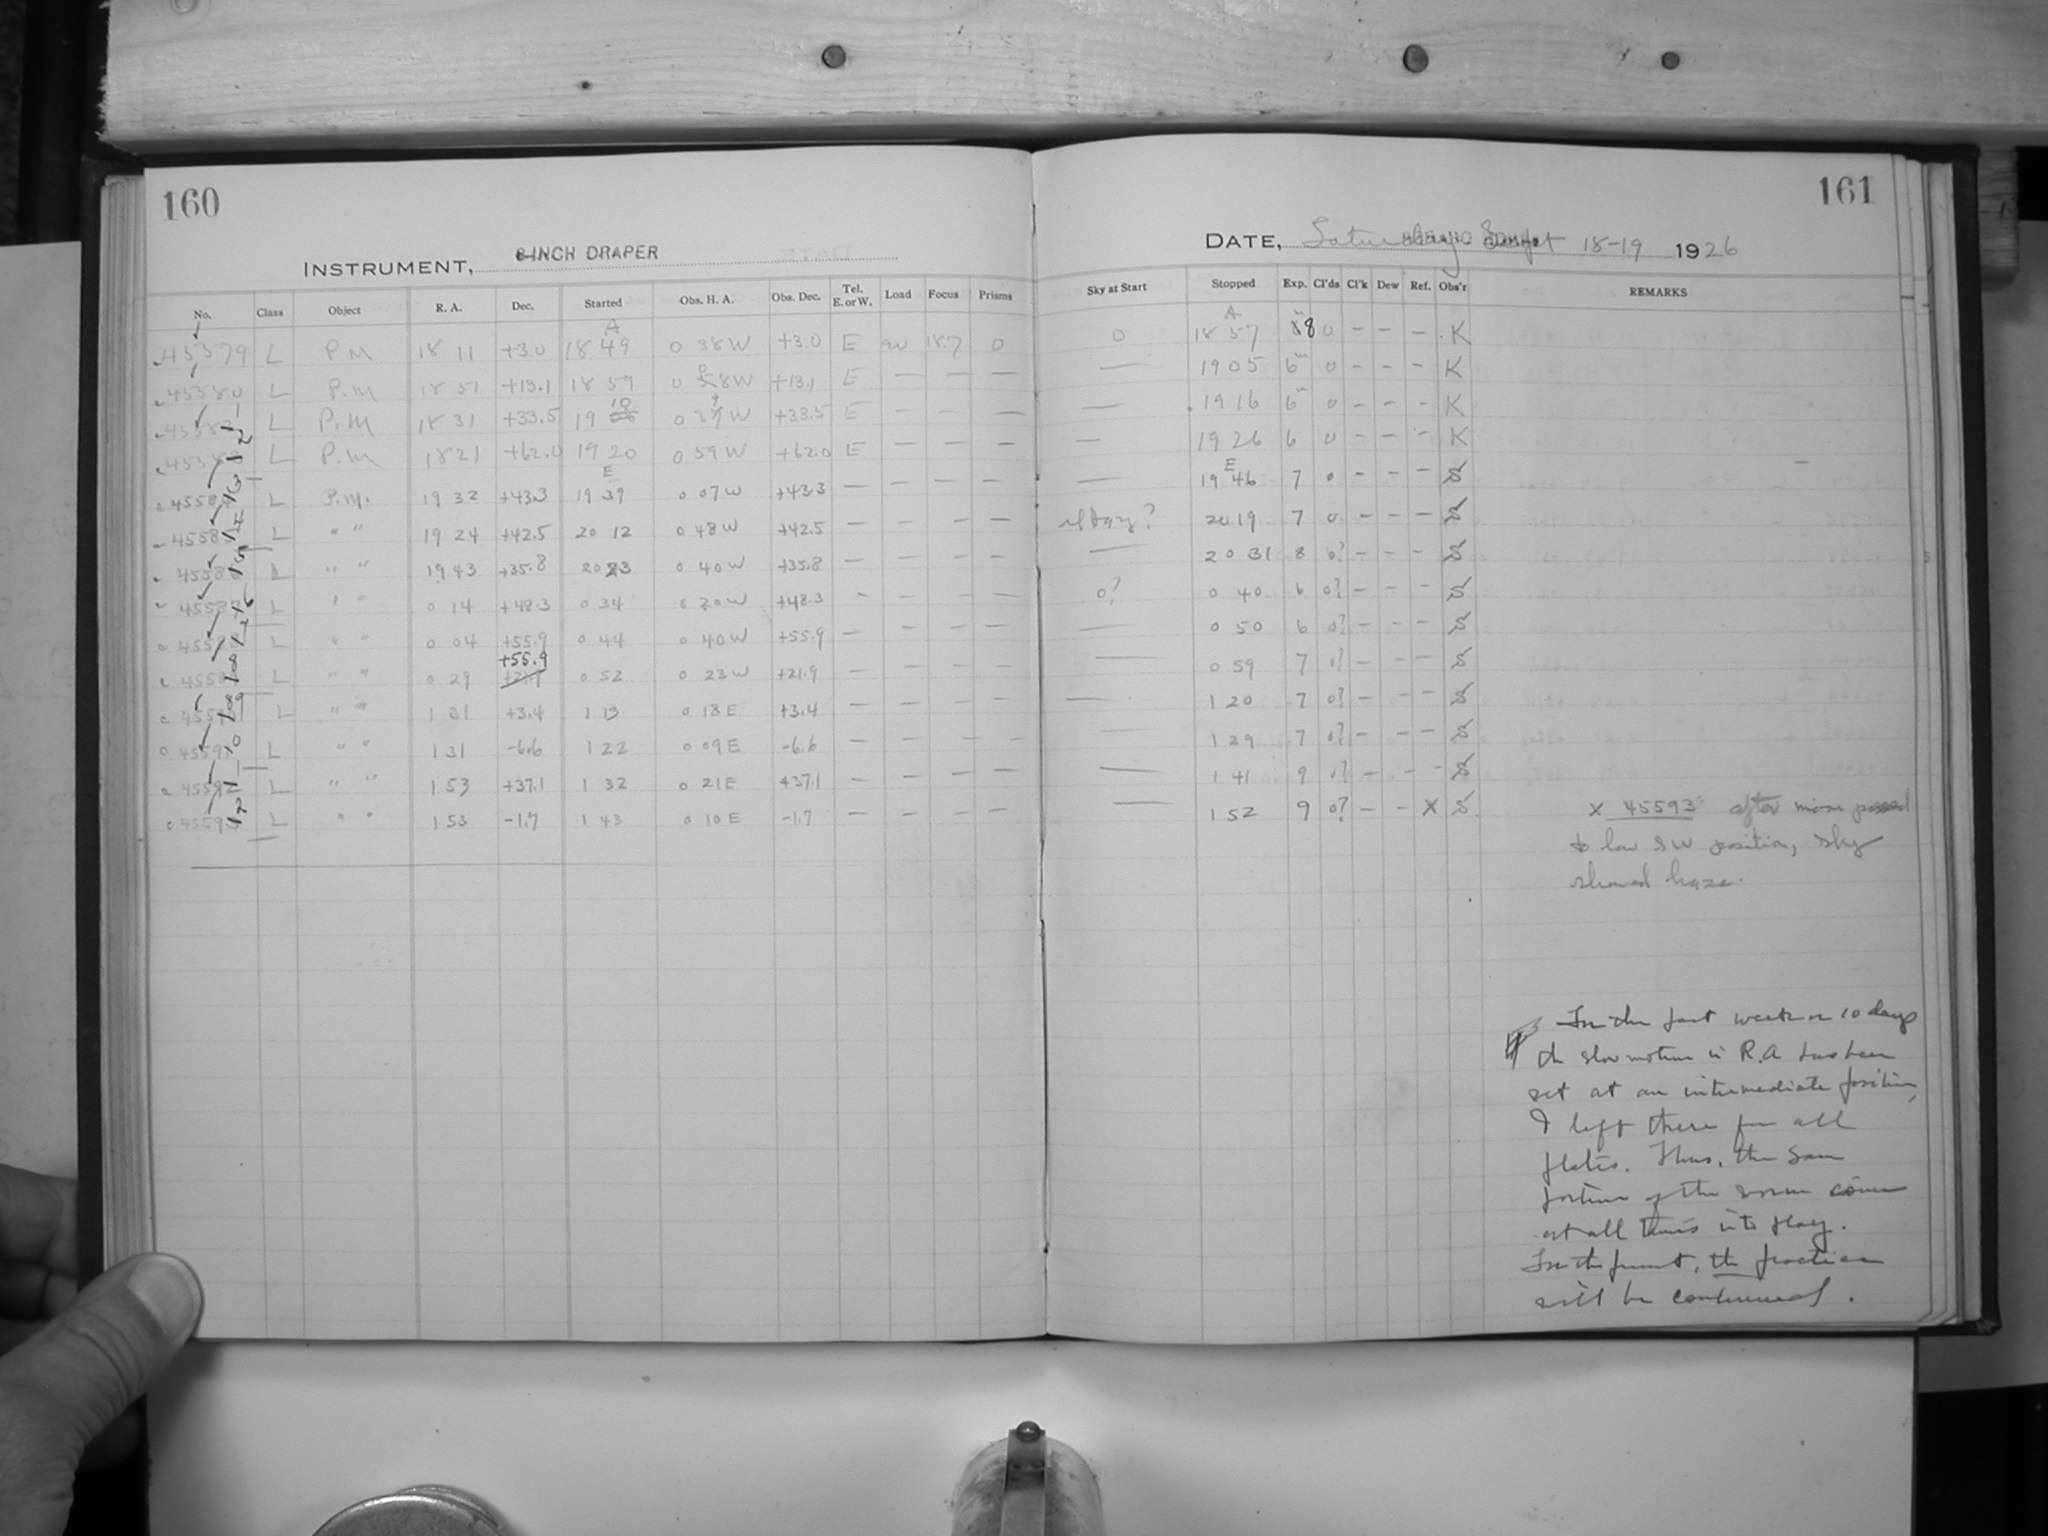 160
161
INSTRUMENT, 8-INCH DRAPER
DATE, Saturday Sept 18-19 1926
No. Class Object R. A. Dec. Started Obs. H. A. Obs. Dec. Tel. E. or W. Load Focus Prisms Sky at Start Stopped Exp. Cl'ds Cl'k Dew Ref. Obs'r REMARKS
A A
45579 L P.M 18 11 +3.0 18 49 0 38 W +3.0 E 90 18.7 0 0 18 57 8 0 - - - K
45580 L P.M 18 51 +13.1 18 59 0 08 W +13.1 E — — — — 19 05 6 0 - - - K
L P.M 18 31 +33.5 19 10 0 39 W +33.5 E — — — — 19 16 6 0 - - - K
L P.M 18 21 +62.0 19 20 0 59 W +62.0 E — — — — 19 26 6 0 - - - K
E E
L P.M. 19 32 +43.3 19 39 0 07 W +43.3 — — — — — 19 46 7 0 - - - S
L " " 19 24 +42.5 20 12 0 48 W +42.5 — — — — 20 19 7 0 - - - S
L " " 19 43 +35.8 20 23 0 40 W +35.8 — — — — — 20 31 8 0? - - - S
L " " 0 14 +48.3 0 34 0 20 W +48.3 — — — — 0? 0 40 6 0? - - - S
L " " 0 04 +55.9 0 44 0 40 W +55.9 — — — — — 0 50 6 0? - - - S
+55.9
L " " 0 29 +21.9 0 52 0 23 W +21.9 — — — — — 0 59 7 0? - - - S
L " " 1 31 +3.4 1 13 0 18 E +3.4 — — — — — 1 20 7 0? - - - S
L " " 1 31 -6.6 1 22 0 09 E -6.6 — — — — — 1 29 7 0? - - - S
L " " 1 53 +37.1 1 32 0 21 E +37.1 — — — — — 1 41 9 0? - - - S
L " " 1 53 -1.7 1 43 0 10 E -1.7 — — — — — 1 52 9 0? - - X S X 45593 after moon passed
to low SW position, sky
showed haze.
In the past week or 10 days
the slow motion in R.A has been
set at an intermediate position,
& left there for all
plates. Thus, the same
portion of the screw comes
at all times into play.
For the present, the practice
will be continued.